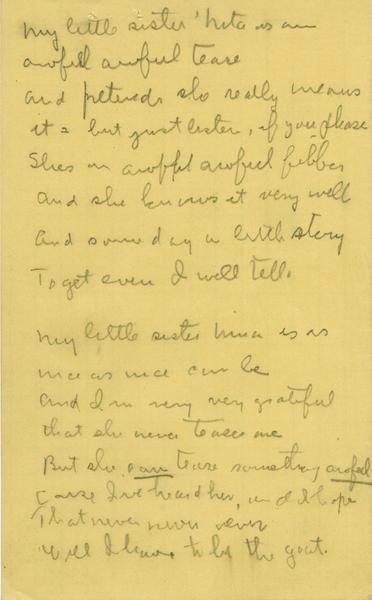 My little sister 'Neta is an
awful awful tease
and pretends she really means
it = but just listen, if you please
Shes an awful awful fibber
and she knows it very well
and someday a little story
To get even I will tell.
My little sister Nina is as
nice as nice can be
and I'm very very grateful
that she never teases me
But she can tease something awful
cause I've heard her, and I hope
That never never never
will I have to be the goat.